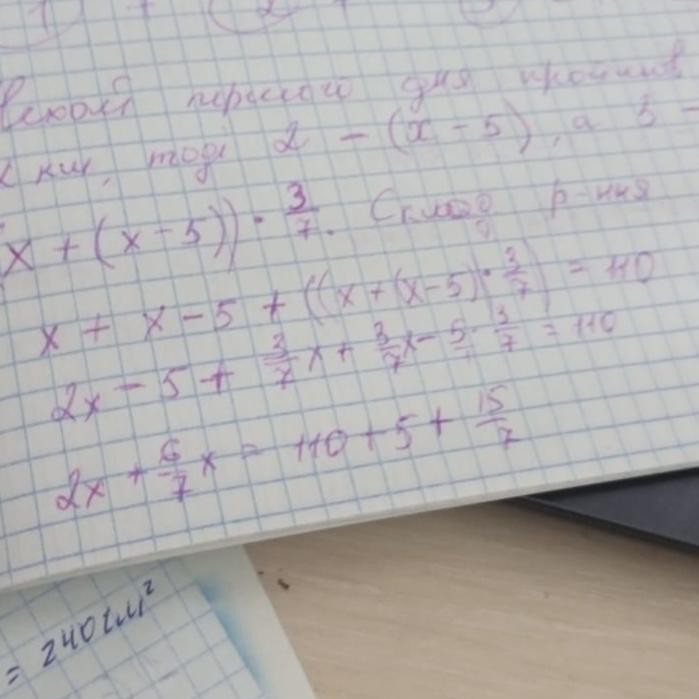 1 + 2 + 3
першого дня пройшов
x км, тоді 2 - (x - 5), а 3 -
(x + (x - 5)) · 3/7. Склад р-ння
x + x - 5 + ((x + (x - 5) · 3/7) = 110
2x - 5 + 3/7 x + 3/7 x - 5/1 · 3/7 = 110
2x + 6/7 x = 110 + 5 + 15/7
= 240 см²